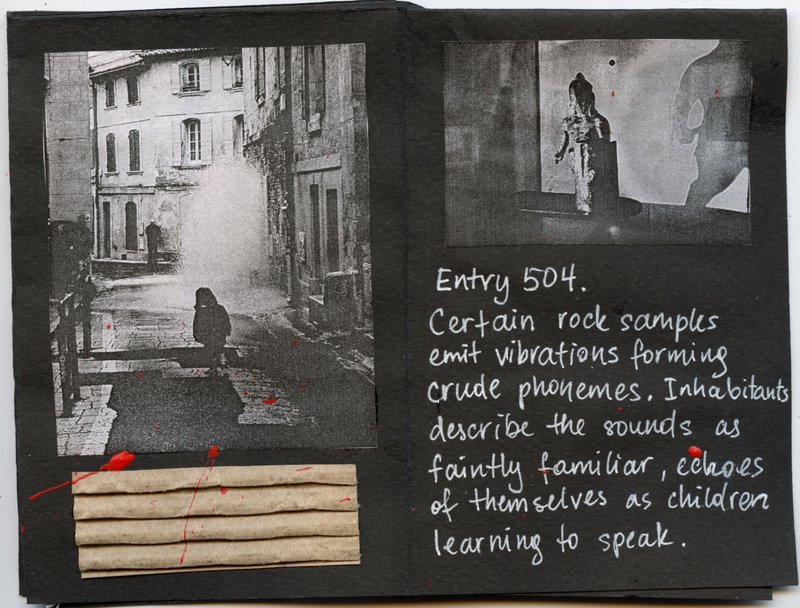 Entry 504.
Certain rock samples
emit vibrations forming
crude phonemes. Inhabitants
describe the sounds as
faintly familiar, echoes
of themselves as children
learning to speak.